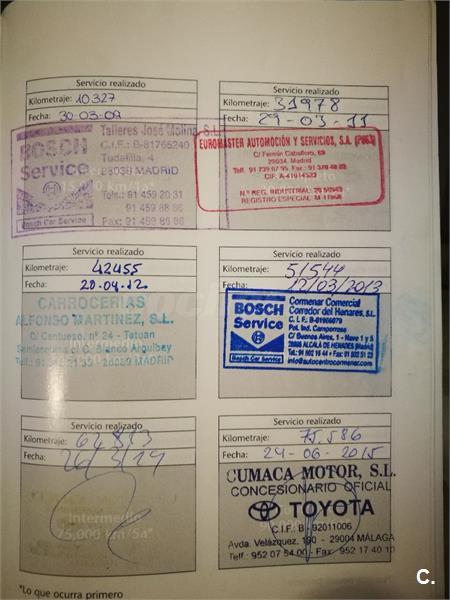 Servicio realizado
Kilometraje: 10327
Fecha: 30-03-09
Talleres José Molina, S.L.
C.I.F.: B-81765240
Tudelilla, 4
28039 MADRID
Tels.: 91 459 20 31
91 459 88 86
Fax: 91 459 86 86
BOSCH
Service
Bosch Car Service
Servicio realizado
Kilometraje: 31978
Fecha: 29-03-11
EUROMASTER AUTOMOCIÓN Y SERVICIOS, S.A.
C/ Fermín Caballero, 63
28034, Madrid
Nº REG. INDUSTRIAL:
REGISTRO ESPECIAL:
Servicio realizado
Kilometraje: 42455
Fecha: 20-04-12
CARROCERIAS
ALFONSO MARTINEZ, S.L.
C/ Cantueso, nº 24 - Tetuan
28039 MADRID
Servicio realizado
Kilometraje: 51544
Fecha: 12/03/2013
BOSCH
Service
Bosch Car Service
Colmenar Comercial
Corredor del Henares, S.L.
C. I. F.: B-81956079
Pol. Ind. Camporroso
C/ Buenos Aires, 1 - Nave 1 y 5
28806 ALCALÁ DE HENARES (Madrid)
Servicio realizado
Kilometraje:
Fecha: 26/3/14
Intermedio
75,000 km/5aº
Servicio realizado
Kilometraje: 75.586
Fecha: 24-06-2015
CUMACA MOTOR, S.L.
CONCESIONARIO OFICIAL
TOYOTA
C.I.F.: B - 92011006
Avda. Velázquez, 190 - 29004 MÁLAGA
Telf.: 952 07 54 00 - Fax: 952 17 40 10
*Lo que ocurra primero
C.